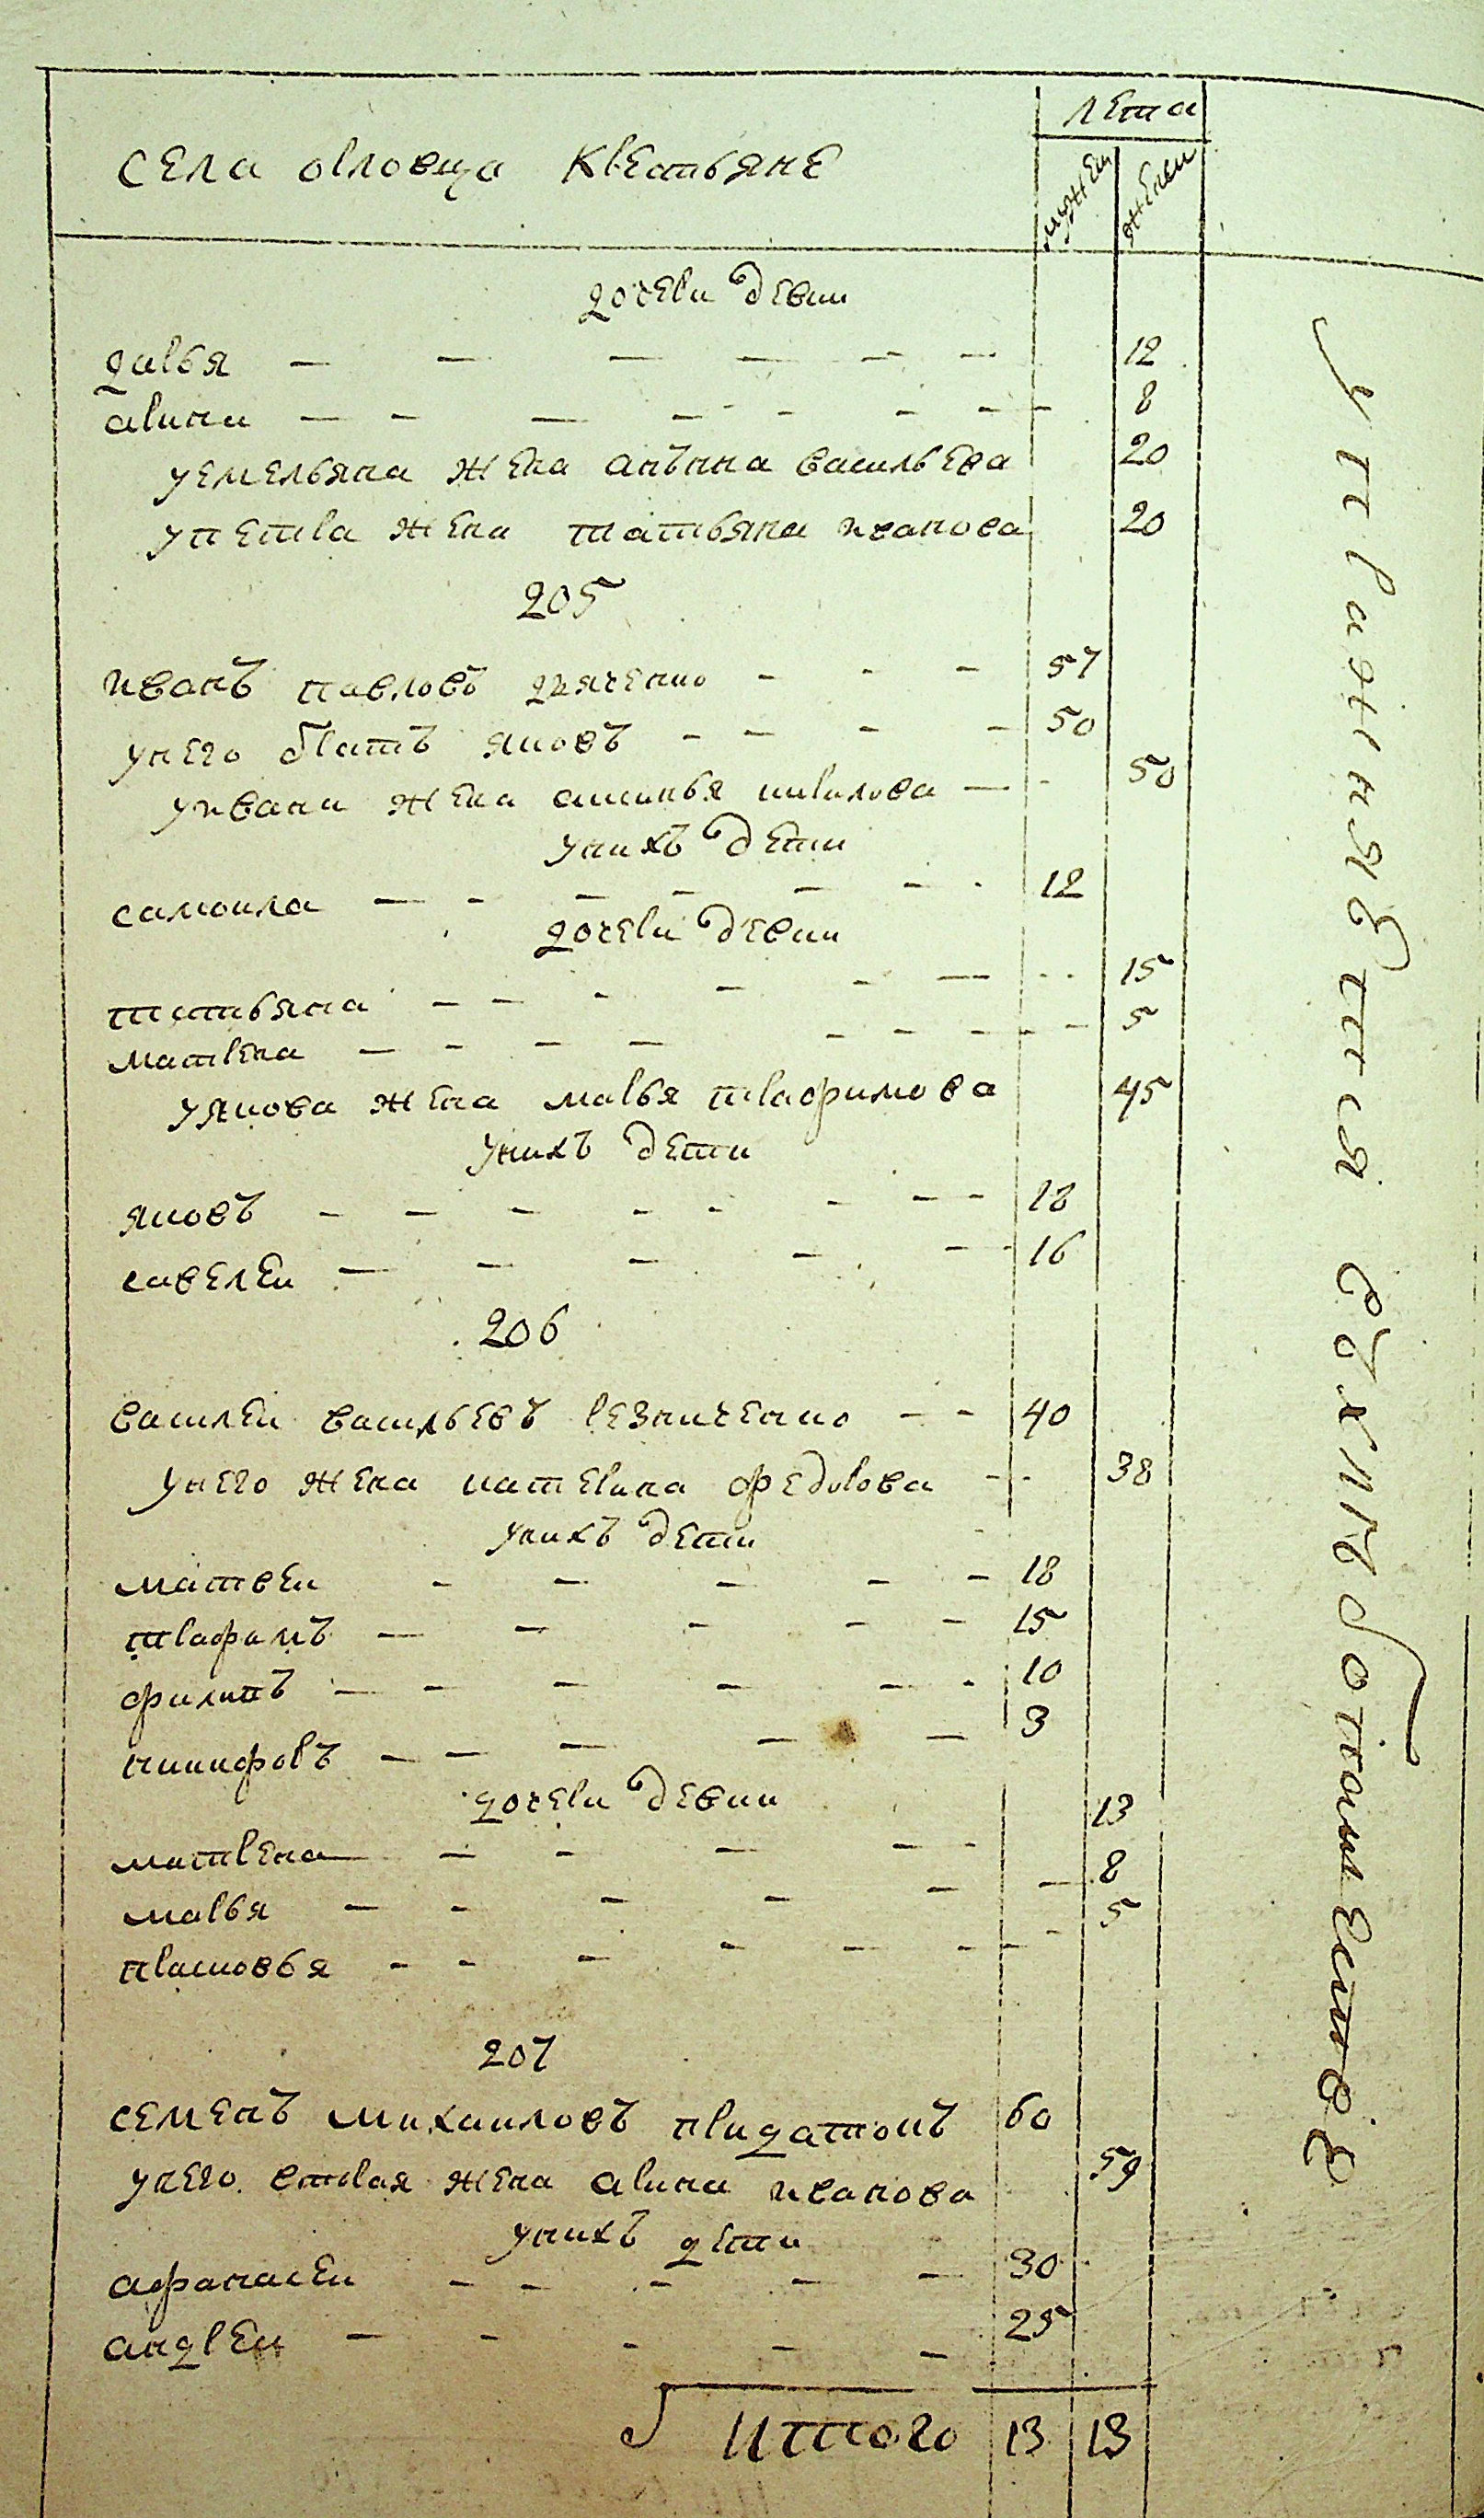 села орловца крестьяне
лета
мужеи
женеи
дочери девки
дарья 12
арина 8
уемельяна жена анънна васильева 20
упетра жена татьяна иванова 20
205
иванъ павловъ дяченко 57
унего братъ яковъ 50
уивана жена аксинья кирилова 50
унихъ дети
самоила 12
дочери девки
татьяна 15
матрена 5
уякова жена марья трафимова 45
унихъ дети
яковъ 18
савелеи 16
206
василеи васильевъ резниченко 40
унего жена катерина федорова 38
унихъ дети
матвеи 18
трафимъ 15
филипъ 10
никифоръ 3
дочери девки
матрена 13
марья 8
прасковья 5
207
семенъ михаиловъ придаткоъ 60
унего вторая жена арина иванова 59
унихъ дети
афанасеи 30
андреи 25
итого 13 13
упражняется